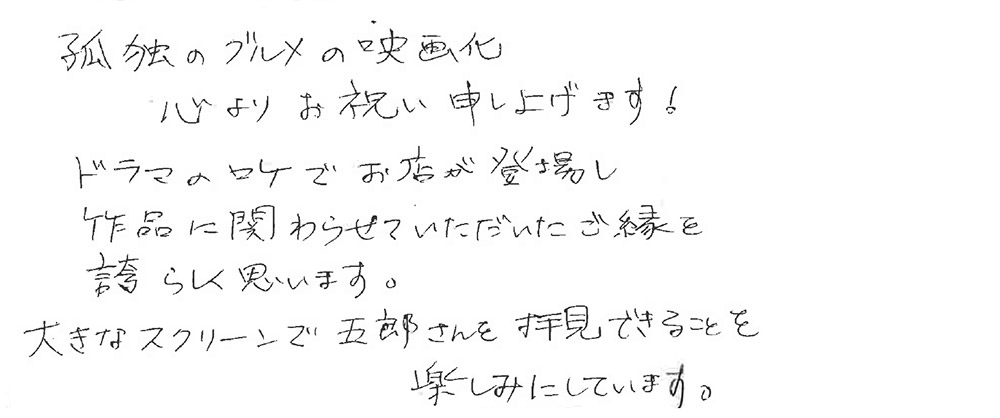 孤独のグルメの映画化
心よりお祝い申し上げます!
ドラマのロケでお店が登場し
作品に関わらせていただいたご縁を
誇らしく思います。
大きなスクリーンで五郎さんを拝見できることを
楽しみにしています。